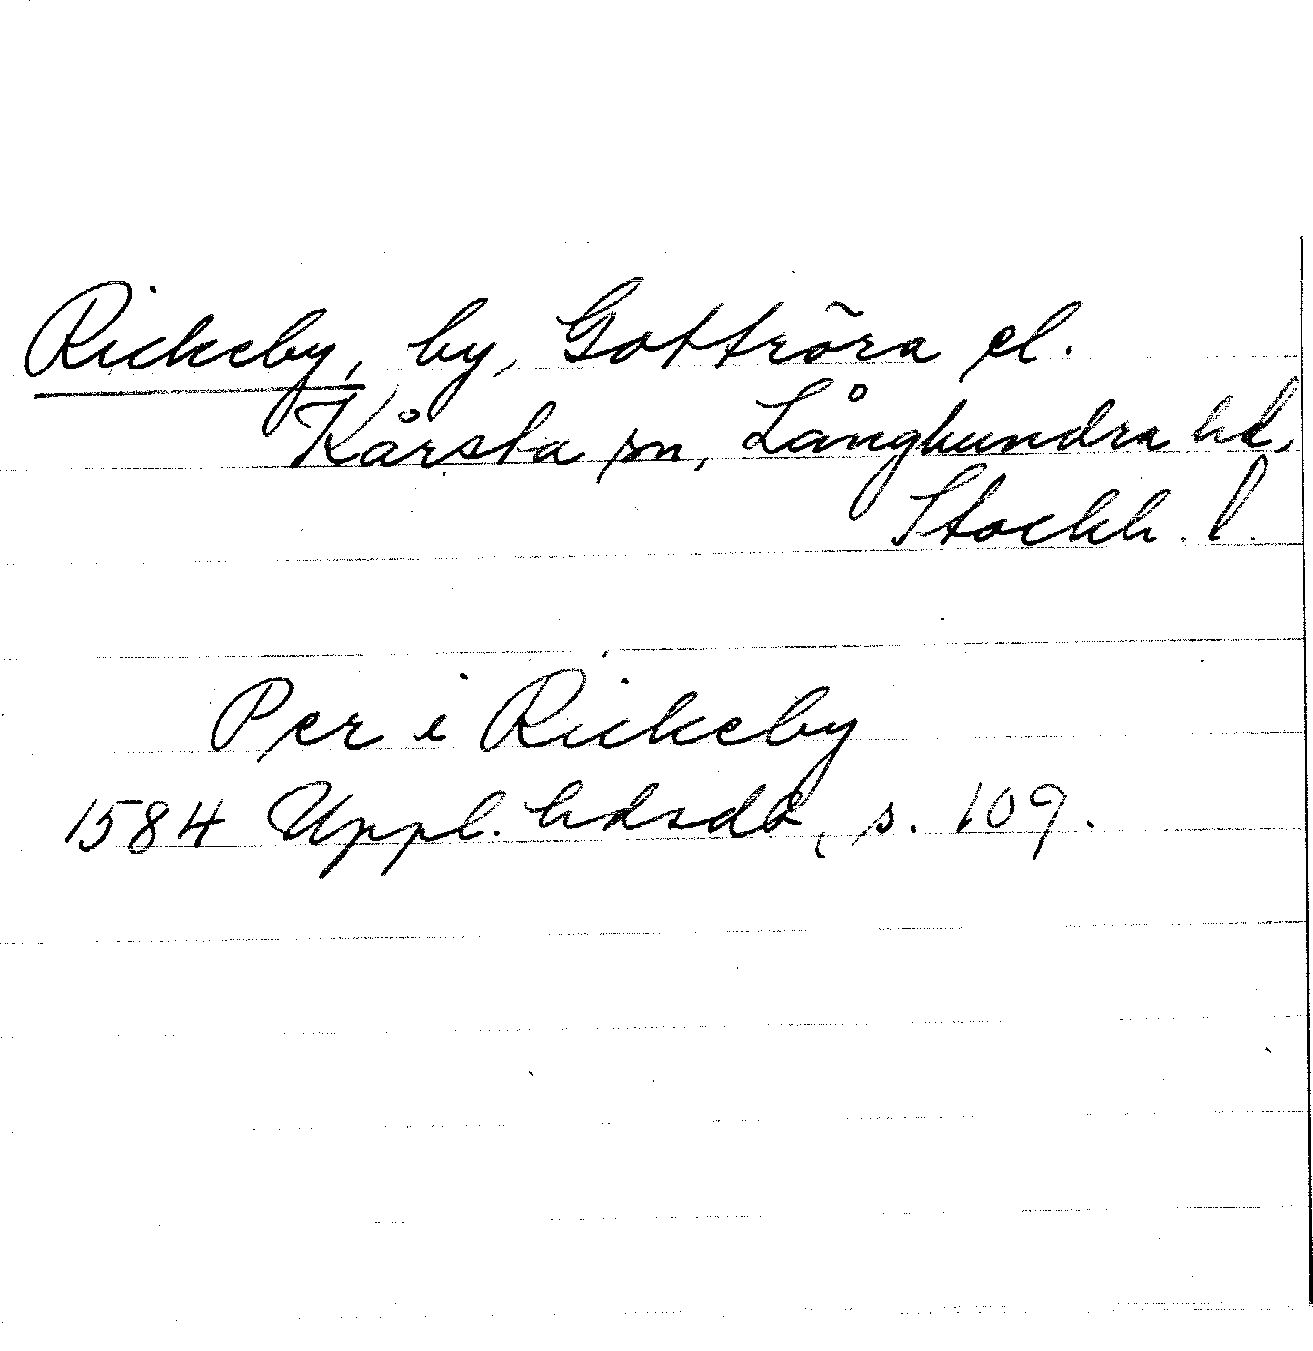 Rickeby, by, Gottröra el.
Kårsta sn, Långhundra hd,
Stockh. l.
Per i Rickeby
1584 Uppl. hdsdb, s. 109.